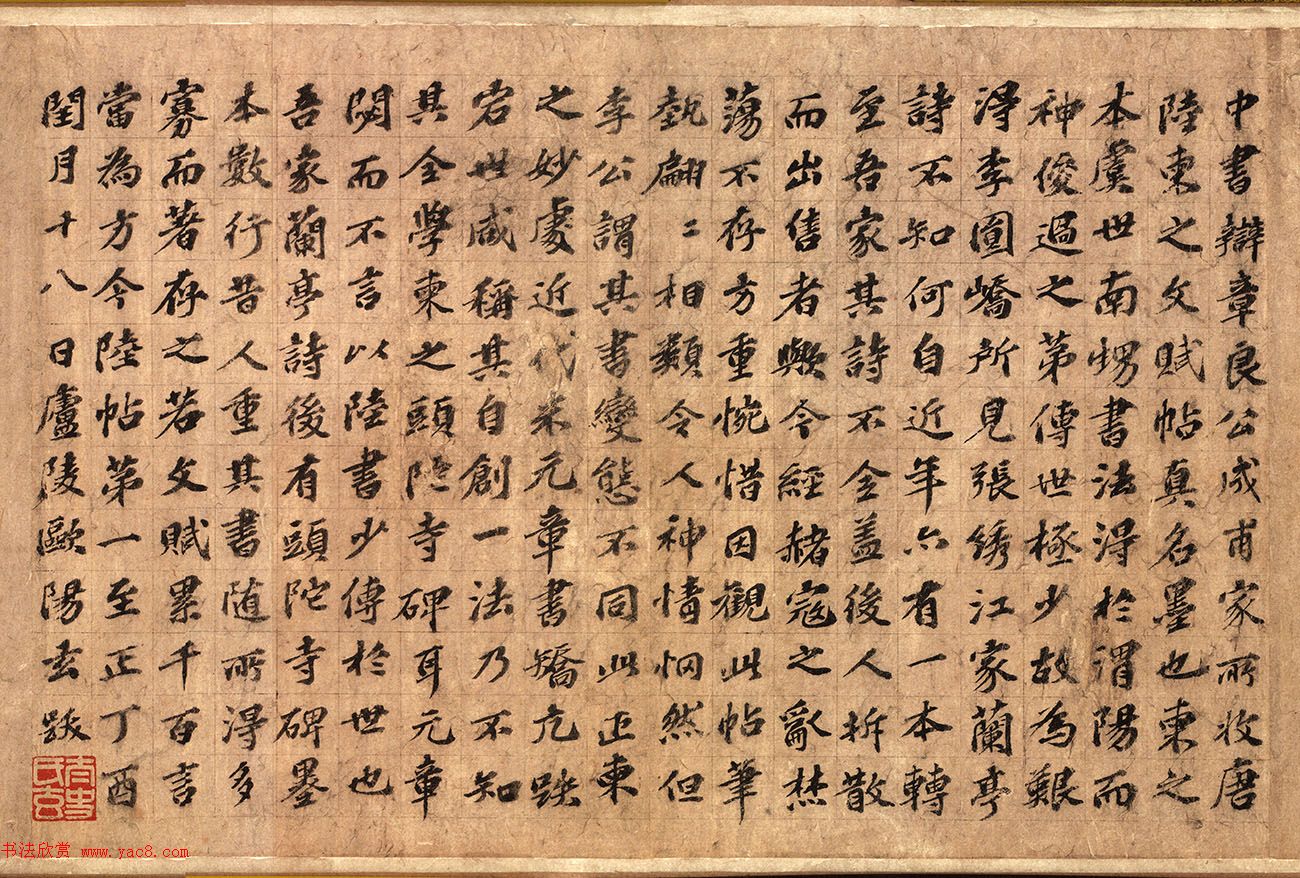 中書辯章良公成甫家所收唐
陸柬之文賦帖真名墨也柬之
本虞世南甥書法淂於渭陽而
神俊過之第傳世極少故為艱
淂李圓嶠所見張綉江家蘭亭
詩不知何自近年六有一本轉
至吾家其詩不全盖後人拆散
而出售者歟今經赭寇之亂焚
蕩不存方重惋惜因觀此帖筆
埶翩〻相類令人神情惘然但
李公謂其書變態不同此正柬
之妙處近代米元章書矯亢跌
宕世咸稱其自創一法乃不知
其全學柬之頭陀寺碑耳元章
閟而不言以陸書少傳於世也
吾家蘭亭詩後有頭陀寺碑墨
本數行昔人重其書随所淂多
寡而著存之若文賦累千百言
當為方今陸帖第一至正丁酉
閏月十八日廬陵歐陽玄跋
書法欣赏 www.yac8.com